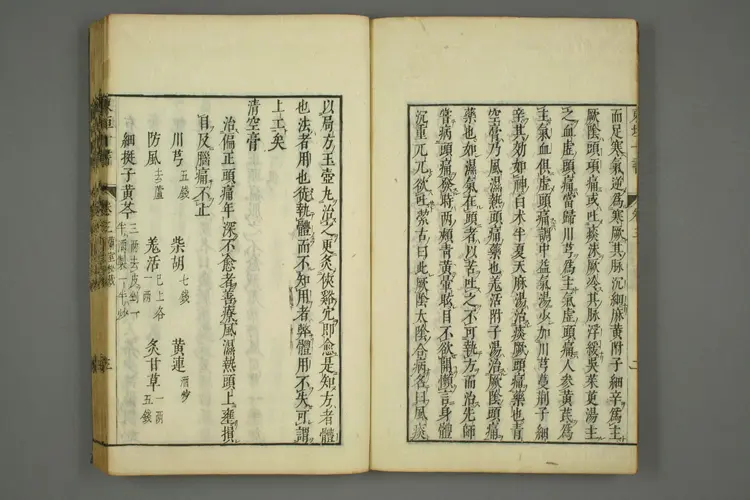 而足寒氣逆爲寒厥其脉沉細麻黄附子細辛爲主
厥陰頭項痛或吐痰沫厥冷其脉浮緩吳茱萸湯主
之血虚頭痛當歸川芎爲主氣虚頭痛人參黄芪爲
主氣血俱虚頭痛調中益氣湯少加川芎蔓荆子細
辛其効如神白术半夏天麻湯治痰厥頭痛藥也青
空膏乃風濕熱頭痛藥也羌活附子湯治厥陰頭痛
藥也如濕氣在頭者以苦吐之不可執方而治先師
嘗病頭痛發時兩頰青黄暈眩目不欲開懶言身體
沉重兀兀欲吐㓗古曰此厥陰太陰合病名曰風痰
以局方玉壺丸治之更灸俠谿穴即愈是知方者體
也法者用也徒執體而不知用者弊體用不失可謂
上工矣
清空膏
治偏正頭痛年深不愈者善療風濕熱頭上壅損
目及腦痛不止
川芎五錢 柴胡七錢 黄連酒炒
防風去蘆 羌活已上各一兩 炙甘草一兩五錢
細挺子黄芩三兩去皮